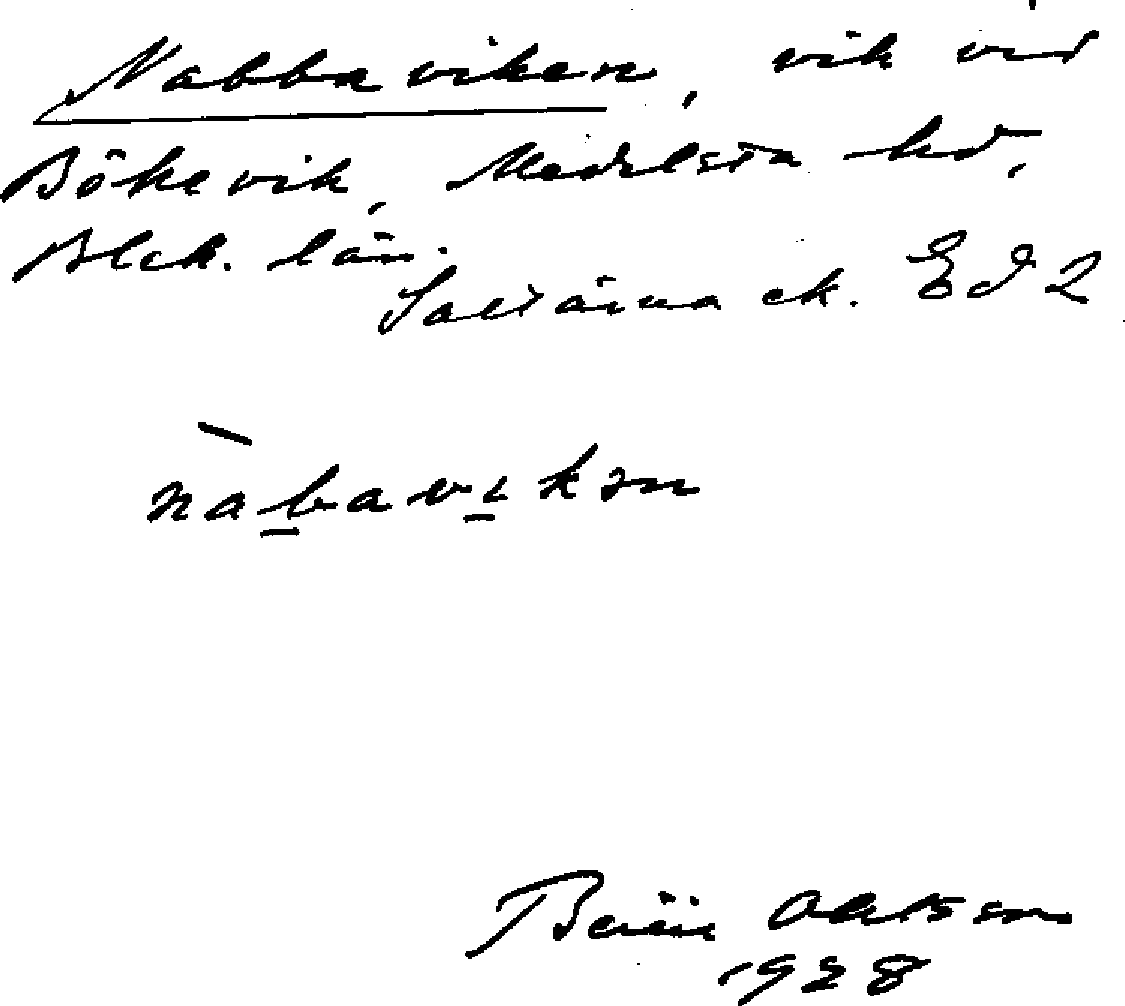 Nabbaviken, vik vid
Bökevik, Medelsta hd,
Blek. län.
Saltärna ek. Ed 2
nàbavikən
Ohlsson
1928